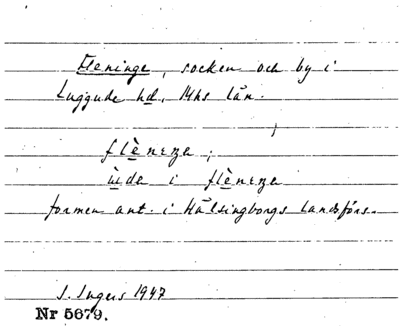 Fleninge, socken och by i
Luggude hd, Mhs län.
flènɪŋa;
ùlda i flènɪŋa
formen ant. i Hälsingborgs landsförs.
I. Ingers 1947
Nr 5679.